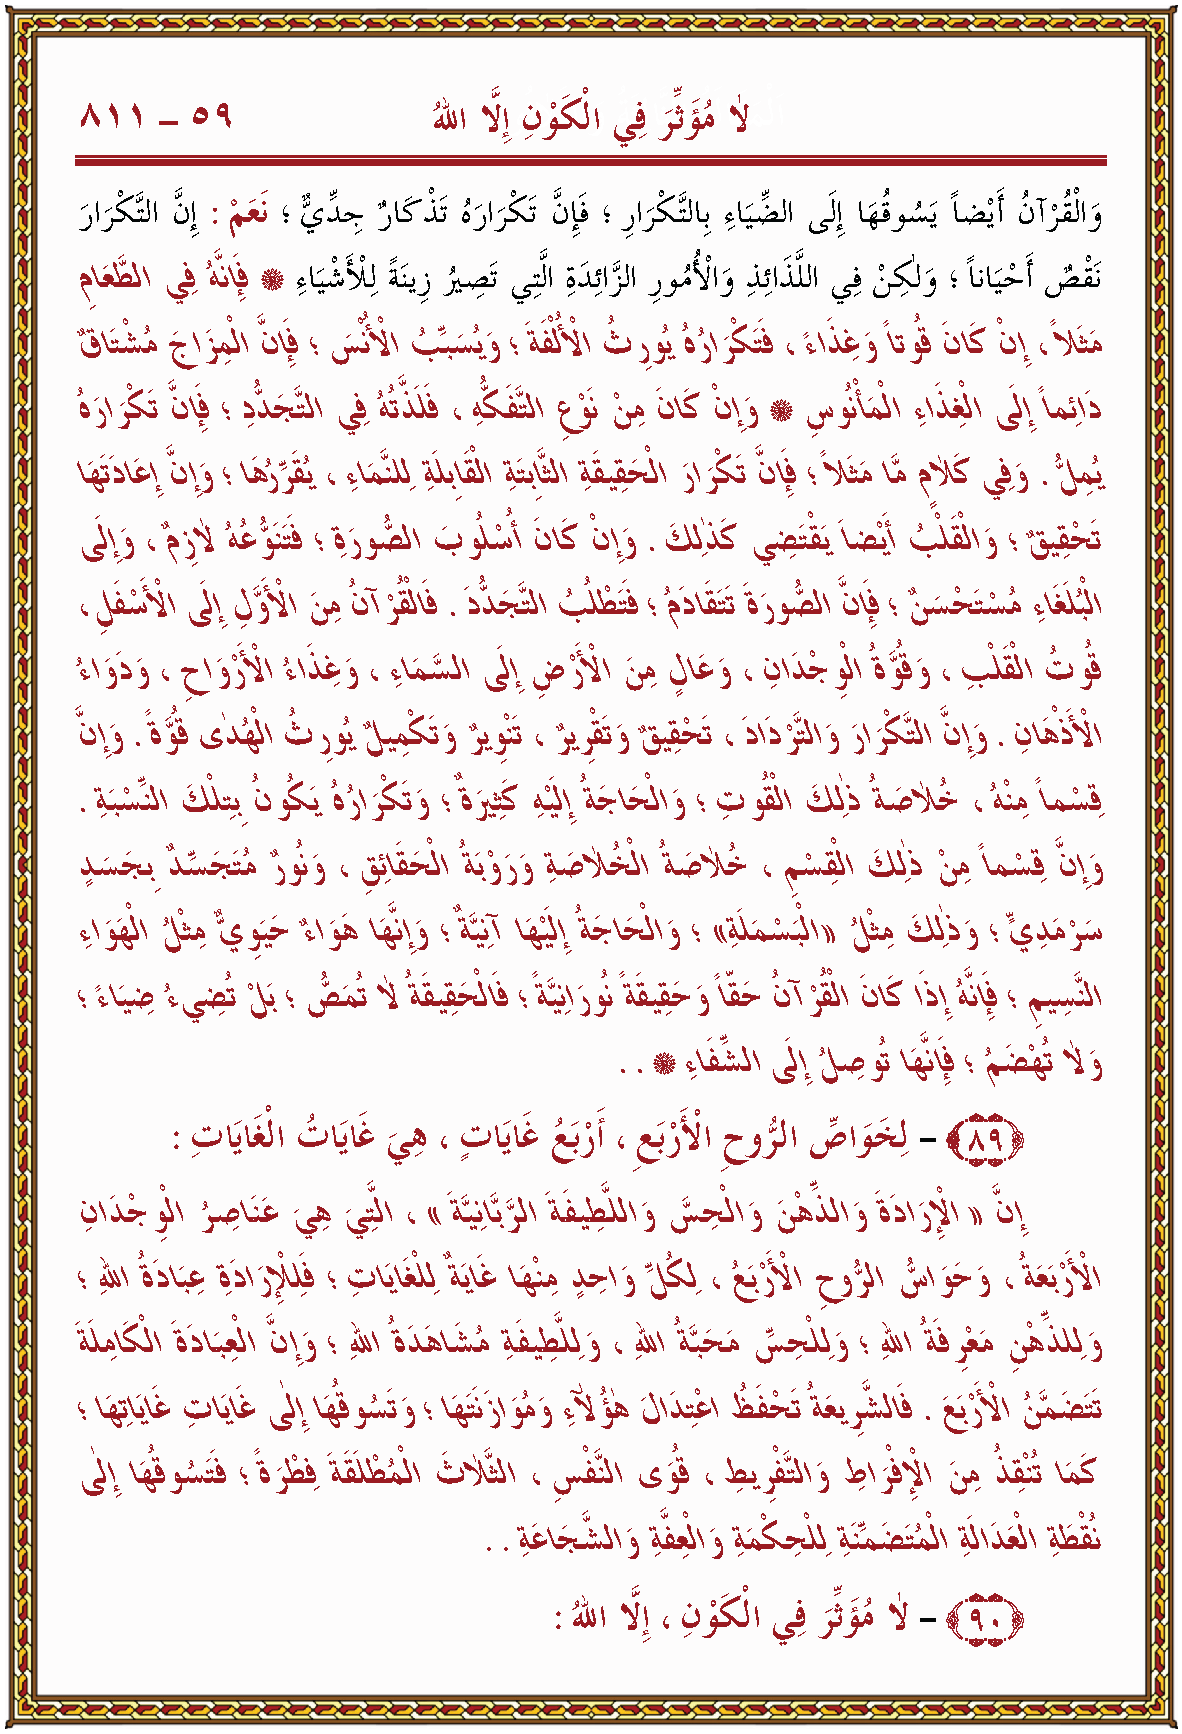 لاٰ مُؤَثِّرَ فِي الْكَوْنِ إِلَّا اللهُ ٥٩ – ٨١١
وَالْقُرْآنُ أَيْضاً يَسُوقُهَا إِلَى الضِّيَاءِ بِالتَّكْرَارِ ؛ فَإِنَّ تَكْرَارَهُ تَذْكَارٌ جِدِّيٌّ ؛ نَعَمْ : إِنَّ التَّكْرَارَ
نَقْصٌ أَحْيَاناً ؛ وَلٰكِنْ فِي اللَّذَائِذِ وَالْأُمُورِ الزَّائِدَةِ الَّتِي تَصِيرُ زِينَةً لِلْأَشْيَاءِ ۞ فَإِنَّهُ فِي الطَّعَامِ
مَثَلاً ، إِنْ كَانَ قُوتاً وَغِذَاءً ، فَتَكْرَارُهُ يُورِثُ الْأُلْفَةَ ؛ وَيُسَبِّبُ الْأُنْسَ ؛ فَإِنَّ الْمِزَاجَ مُشْتَاقٌ
دَائِماً إِلَى الْغِذَاءِ الْمَأْنُوسِ ۞ وَإِنْ كَانَ مِنْ نَوْعِ التَّفَكُّهِ ، فَلَذَّتُهُ فِي التَّجَدُّدِ ؛ فَإِنَّ تَكْرَارَهُ
يُمِلُّ . وَفِي كَلاٰمٍ مَّا مَثَلاً ؛ فَإِنَّ تَكْرَارَ الْحَقِيقَةِ الثَّابِتَةِ الْقَابِلَةِ لِلنَّمَاءِ ، يُقَرِّرُهَا ؛ وَإِنَّ إِعَادَتَهَا
تَحْقِيقٌ ؛ وَالْقَلْبُ أَيْضاَ يَقْتَضِي كَذٰلِكَ . وَإِنْ كَانَ أُسْلُوبَ الصُّورَةِ ؛ فَتَنَوُّعُهُ لاٰزِمٌ ، وَإِلَى
الْبُلَغَاءِ مُسْتَحْسَنٌ ؛ فَإِنَّ الصُّورَةَ تَتَقَادَمُ ؛ فَتَطْلُبُ التَّجَدُّدَ . فَالْقُرْآنُ مِنَ الْأَوَّلِ إِلَى الْأَسْفَلِ ،
قُوتُ الْقَلْبِ ، وَقُوَّةُ الْوِجْدَانِ ، وَعَالٍ مِنَ الْأَرْضِ إِلَى السَّمَاءِ ، وَغِذَاءُ الْأَرْوَاحِ ، وَدَوَاءُ
الْأَذْهَانِ . وَإِنَّ التَّكْرَارَ وَالتَّرْدَادَ ، تَحْقِيقٌ وَتَقْرِيرٌ ، تَنْوِيرٌ وَتَكْمِيلٌ يُورِثُ الْهُدٰى قُوَّةً . وَإِنَّ
قِسْماً مِنْهُ ، خُلاٰصَةُ ذٰلِكَ الْقُوتِ ؛ وَالْحَاجَةُ إِلَيْهِ كَثِيرَةٌ ؛ وَتَكْرَارُهُ يَكُونُ بِتِلْكَ النِّسْبَةِ .
وَإِنَّ قِسْماً مِنْ ذٰلِكَ الْقِسْمِ ، خُلاٰصَةُ الْخُلاٰصَةِ وَرَوْبَةُ الْحَقَائِقِ ، وَنُورٌ مُتَجَسِّدٌ بِجَسَدٍ
سَرْمَدِيٍّ ؛ وَذٰلِكَ مِثْلُ «الْبَسْمَلَةِ» ؛ وَالْحَاجَةُ إِلَيْهَا آنِيَّةٌ ؛ وَإِنَّهَا هَوَاءٌ حَيَوِيٌّ مِثْلُ الْهَوَاءِ
النَّسِيمِ ؛ فَإِنَّهُ إِذَا كَانَ الْقُرْآنُ حَقاًّ وَحَقِيقَةً نُورَانِيَّةً ؛ فَالْحَقِيقَةُ لاٰ تُمَصُّ ؛ بَلْ تُضِيءُ ضِيَاءً ؛
وَلاٰ تُهْضَمُ ؛ فَإِنَّهَا تُوصِلُ إِلَى الشِّفَاءِ ۞ . .
﴿٨٩﴾ – لِخَوَاصِّ الرُّوحِ الْأَرْبَعِ ، أَرْبَعُ غَايَاتٍ ، هِيَ غَايَاتُ الْغَايَاتِ :
إِنَّ « الْإِرَادَةَ وَالذِّهْنَ وَالْحِسَّ وَاللَّطِيفَةَ الرَّبَّانِيَّةَ » ، الَّتِي هِيَ عَنَاصِرُ الْوِجْدَانِ
الْأَرْبَعَةُ ، وَحَوَاسُّ الرُّوحِ الْأَرْبَعُ ، لِكُلِّ وَاحِدٍ مِنْهَا غَايَةٌ لِلْغَايَاتِ ؛ فَلِلْإِرَادَةِ عِبَادَةُ اللهِ ؛
وَلِلذِّهْنِ مَعْرِفَةُ اللهِ ؛ وَلِلْحِسِّ مَحَبَّةُ اللهِ ، وَلِلَّطِيفَةِ مُشَاهَدَةُ اللهِ ؛ وَإِنَّ الْعِبَادَةَ الْكَامِلَةَ
تَتَضَمَّنُ الْأَرْبَعَ . فَالشَّرِيعَةُ تَحْفَظُ اعْتِدَالَ هٰؤُلآءِ وَمُوَازَنَتَهَا ؛ وَتَسُوقُهَا إِلٰى غَايَاتِ غَايَاتِهَا ؛
كَمَا تُنْقِذُ مِنَ الْإِفْرَاطِ وَالتَّفْرِيطِ ، قُوَى النَّفْسِ ، الثَّلاٰثَ الْمُطْلَقَةَ فِطْرَةً ؛ فَتَسُوقُهَا إِلٰى
نُقْطَةِ الْعَدَالَةِ الْمُتَضَمِّنَةِ لِلْحِكْمَةِ وَالْعِفَّةِ وَالشَّجَاعَةِ . .
﴿٩٠﴾ – لاٰ مُؤَثِّرَ فِي الْكَوْنِ ، إِلَّا اللهُ :